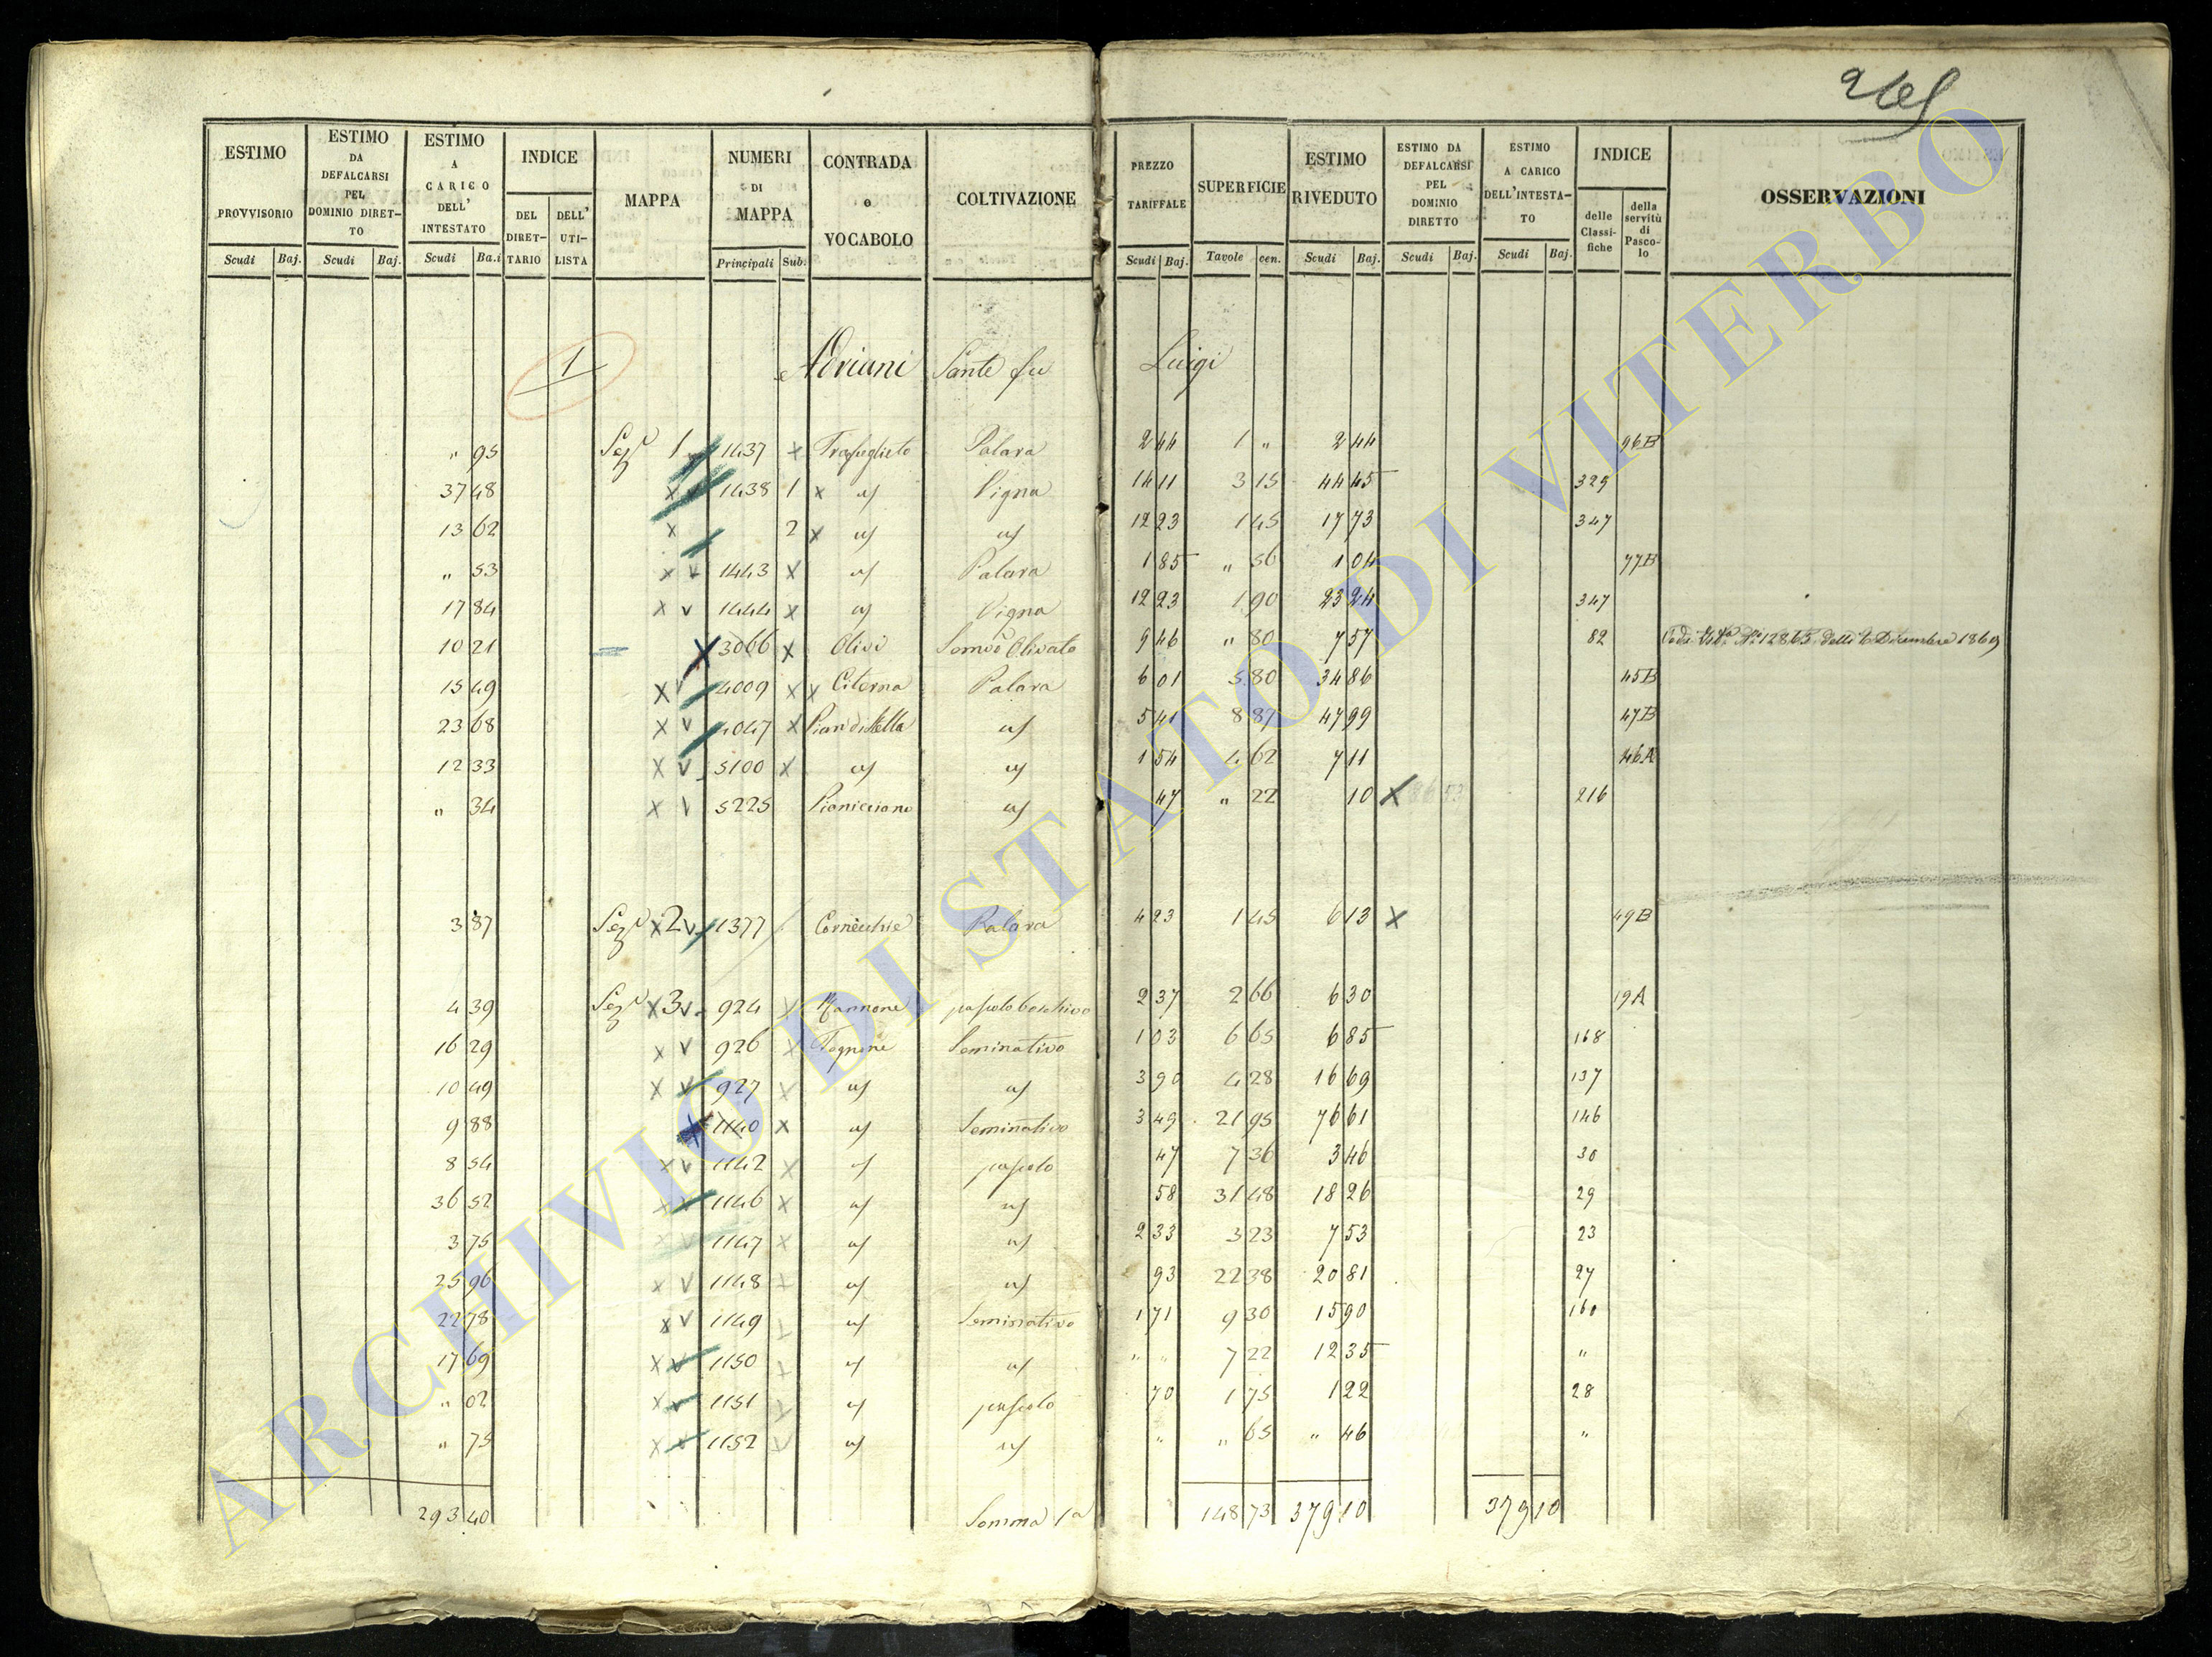 ESTIMO PROVVISORIO Scudi Baj.
ESTIMO DA DEFALCARSI PEL DOMINIO DIRETTO Scudi Baj.
ESTIMO A CARICO DELL' INTESTATO Scudi Ba.i
INDICE DEL DIRETTARIO DELL' UTILISTA
MAPPA
NUMERI DI MAPPA Principali Sub.
CONTRADA o VOCABOLO
COLTIVAZIONE
PREZZO TARIFFALE Scudi Baj.
SUPERFICIE Tavole cen.
ESTIMO RIVEDUTO Scudi Baj.
ESTIMO DA DEFALCARSI PEL DOMINIO DIRETTO Scudi Baj.
ESTIMO A CARICO DELL'INTESTATO Scudi Baj.
INDICE delle Classifiche della servitù di Pascolo
OSSERVAZIONI
1 Adriani Sante fu Luigi
" 95 Sez 1 1437 Palara 2 44 1 " 2 44 96B
37 48 1438 1 Vigna 14 11 3 15 44 45 329
13 62 2 12 23 1 45 17 73 347
" 53 1443 Palara 1 85 " 56 1 04 77B
17 84 1444 Vigna 12 23 1 90 23 24 347
10 21 3066 Olivi Olivato 9 46 " 80 7 57 82 Dicembre 1869
15 49 4009 Citerna Palara 6 01 5 80 34 86 45B
23 68 4047 5 41 8 87 47 99 47B
12 33 5100 1 54 4 62 7 11 46A
" 34 5225 47 " 22 10 216
3 87 Sez 2 1377 Cornecchie Palara 4 23 1 45 6 13 49B
4 39 Sez 3 924 pascolo boschivo 2 37 2 66 6 30 19A
16 29 926 Seminativo 1 03 6 65 6 85 168
10 49 927 3 90 4 28 16 69 137
9 88 1140 Seminativo 3 49 21 95 76 61 146
8 54 1142 pascolo 47 7 36 3 46 30
36 52 1146 58 31 48 18 26 29
3 75 1147 2 33 3 23 7 53 23
25 96 1148 93 22 38 20 81 27
22 78 1149 Seminativo 1 71 9 30 15 90 160
17 69 1150 " " 7 22 12 35 "
" 02 1151 pascolo 70 1 75 1 22 28
" 75 1152 " " 65 " 46 "
293 40 Somma 1a 148 73 379 10 379 10
ARCHIVIO DI STATO DI VITERBO